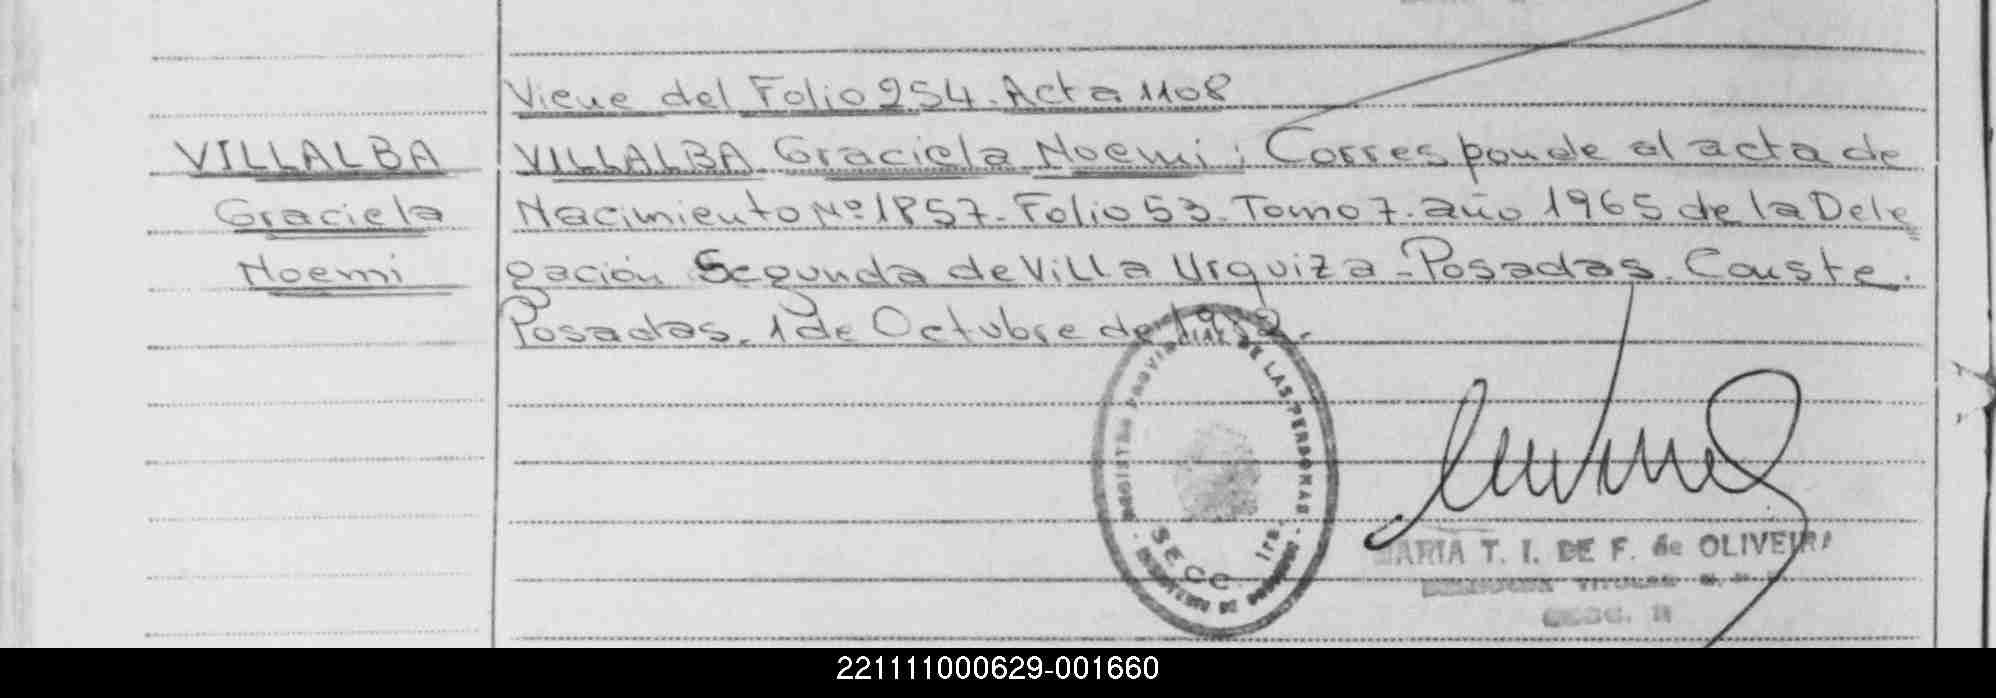 Viene del Folio 254. Acta 1108
VILLALBA
Graciela
Noemi
VILLALBA Graciela Noemi; Corresponde al acta de
Nacimiento Nº 1857. Folio 53. Tomo 7. año 1965 de la Dele
gación Segunda de Villa Urquiza. Posadas. Conste.
Posadas. 1 de Octubre de
REGISTRO PROVINCIAL DE LAS PERSONAS
SECC. 1ra.
MARIA T. I. DE F. de OLIVEIRA
221111000629-001660